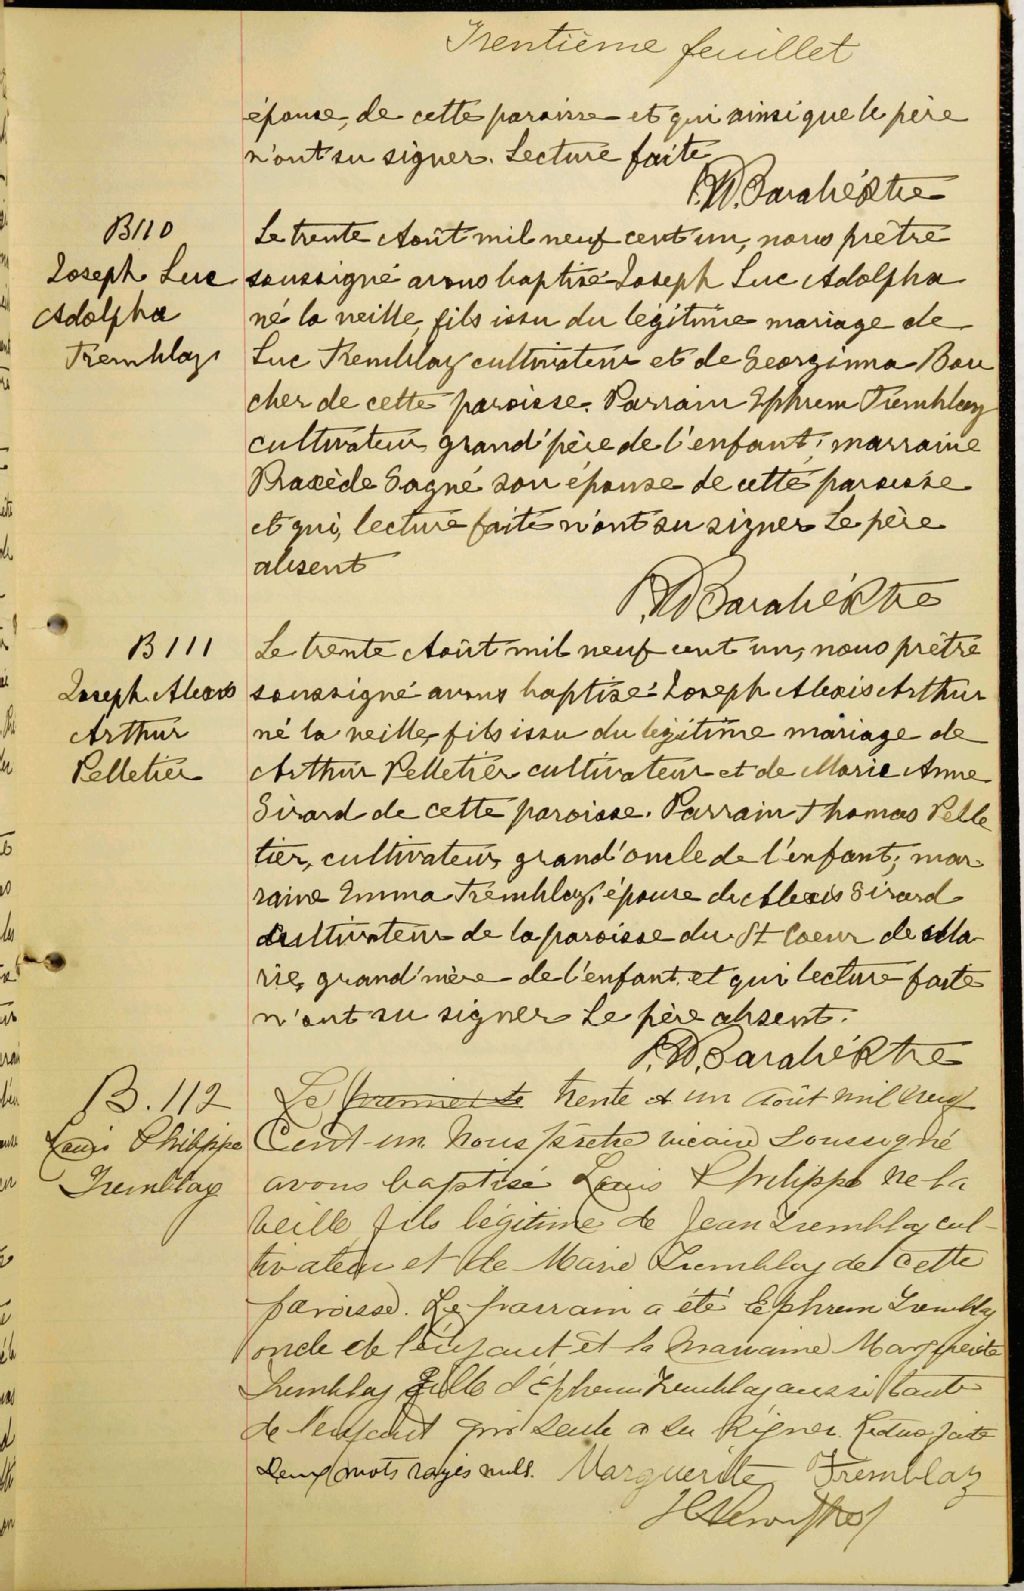 Trentième feuillet
épouse, de cette paroisse et qui ainsi que le père
n'ont su signer. Lecture faite
Ptre
B110
Joseph Luc
Adolpha
Tremblay
Le trente Août mil neuf cent un, nous prêtre
soussigné avons baptisé Joseph Luc Adolpha
né la veille, fils issu du légitime mariage de
Luc Tremblay cultivateur et de Georginna Bou
cher de cette paroisse. Parrain Ephrem Tremblay
cultivateur grand'père de l'enfant; marraine
Praxède Gagné son épouse de cette paroisse
et qui, lecture faite n'ont su signer Le père
absent
Ptre
B111
Joseph Alexis
Arthur
Pelletier
Le trente Août mil neuf cent un, nous prêtre
soussigné avons baptisé Joseph Alexis Arthur
né la veille, fils issu du légitime mariage de
Arthur Pelletier cultivateur et de Marie Anne
Girard de cette paroisse. Parrain Thomas Pelle
tier, cultivateur, grand'oncle de l'enfant; mar
raine Emma Tremblay, épouse de Alexis Girard
cultivateur de la paroisse du St Coeur de Ma
rie, grand'mère de l'enfant et qui lecture faite
n'ont su signer Le père absent.
Ptre
B. 112
Louis Philippe
Tremblay
Le premier de trente et un Août mil neuf
Cent un Nous Prêtre vicaire Soussigné
avons baptisé Louis Philippe né la
veille, fils légitime de Jean Tremblay cul-
tivateur et de Marie Tremblay de cette
paroisse. Le parrain a été Ephrem Tremblay
oncle de l'enfant et la marraine Marguerite
Tremblay fille d'Ephrem Tremblay aussi tante
de l'enfant qui seule a su signer. Lecture faite
Deux mots rayés nuls. Marguerite Tremblay